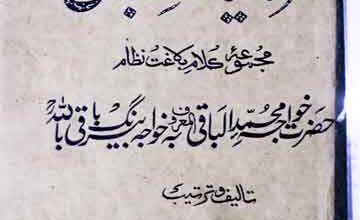 مجموعۂ کلام بلاغت نظام
حضرت خواجہ محمد الباقی المعروف بہ خواجہ بیرنگ باقی باللہ
تالیف و ترتیب